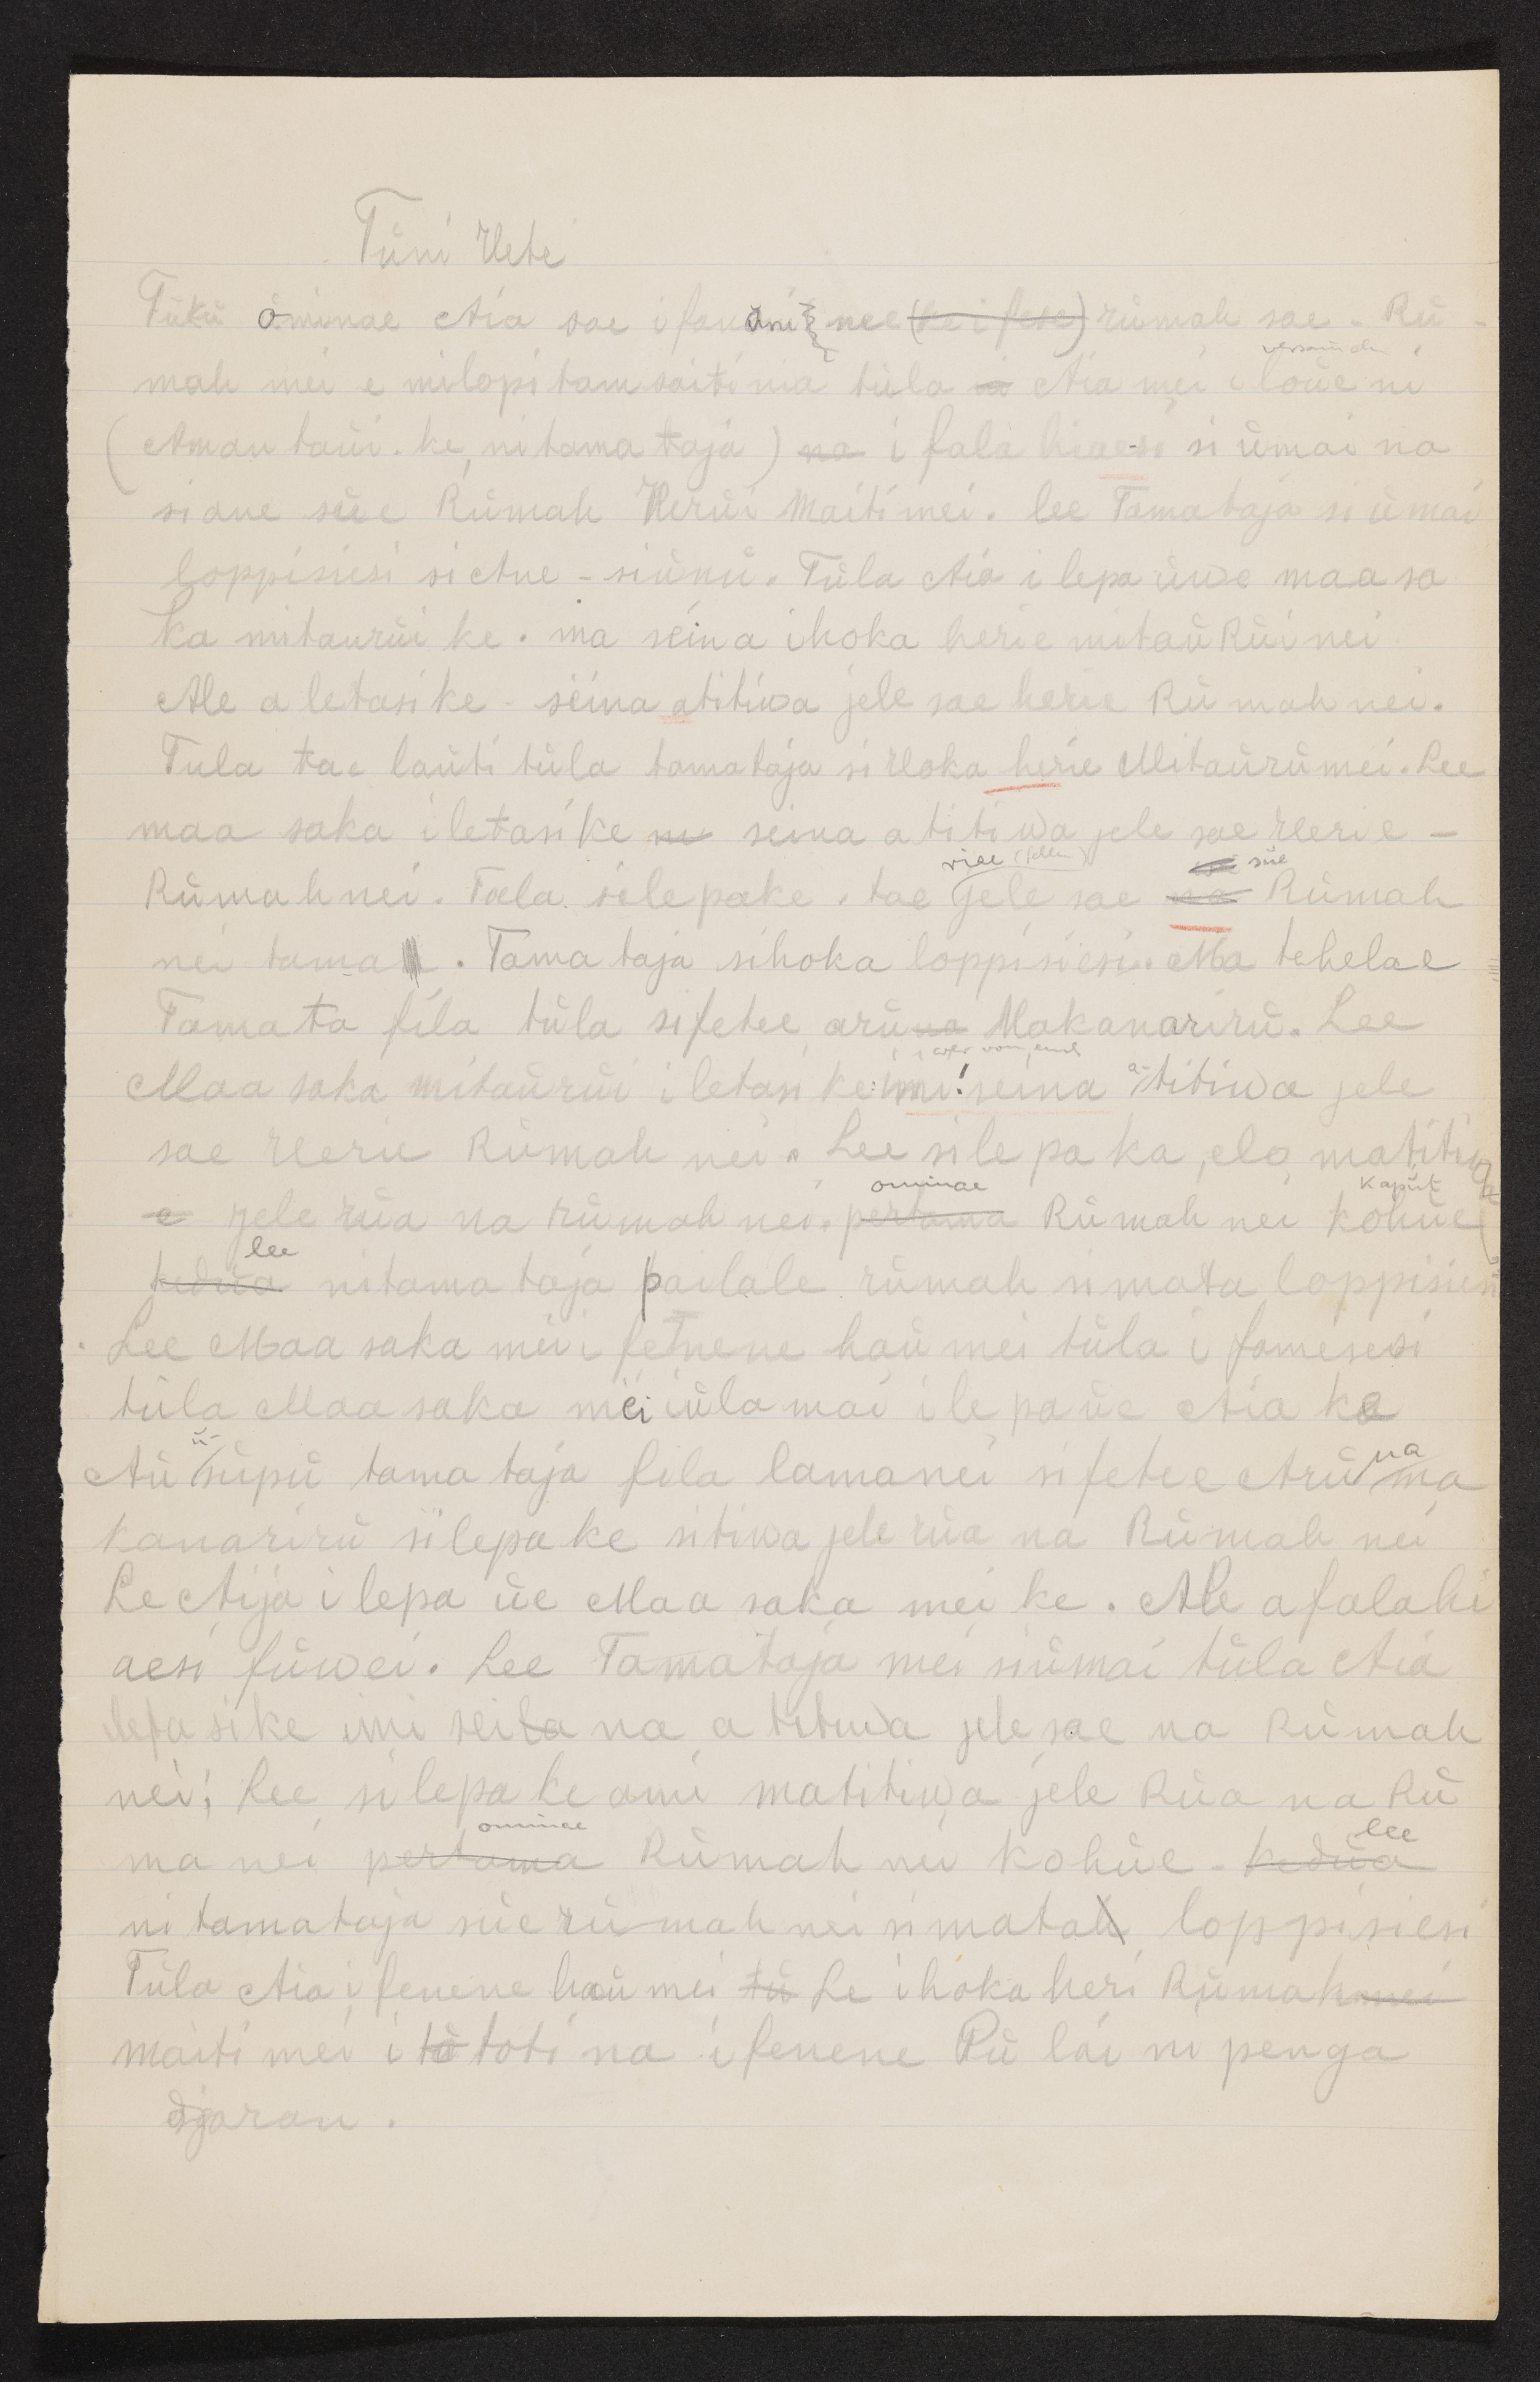 Tüni Uete
Tükü ominae Aia sae i fau ani nee (ke i fese) rümah sae - Rü-
mah mei e milopi tam saiti nia tüla Aia mei i loüe ni
(Aman taüi. ke, ni tama taja) na i fala hiaesi si ümai na
si ane süe Rümah Herüi Maiti mei. lee Tamataja si ümai
loppisiesi si Ane - siünü. Tüla Aia i lepa üwe maa sa
ka mitaurüi ke. ma seina ihoka herie mitaü Rüi nei
Ale a letasi ke - seina atitiwa jele sae herie Rümah nei.
Tula tae laüti tüla tamataja si Hoka herie Mitaürümei. Lee
maa saka i letasi ke ni seina atitiwa jele sae Herie -
riee süe
Rümah nei. Tala silepake. tae jele sae na Rümah
nei tama. Tama taja sihoka loppisiesi. Ma tehelae
Tamata fila tüla sifetee arü na Makanarirü. Lee
Maa saka mitaürüi i letasi ke: imi! seina a-titiwa jele
sae Herie Rümah nei. Lee silepa ka, elo matitiwa
ominae kapüt
e jele rüa na rümah nei. pertama Rümah nei kohüe
lee
kedua ni tama taja pailale rümah simata loppisiesi
Lee Maa saka mei i fetnene haü mei tüla i famesesi
tüla Maa saka mei iüla mai i lepa üe Aia ke
Aü ü-süpü tama taja fila lamanei si fetee Arü na ma
kanarirü silepa ke sitiwa jele rüa na Rümah nei
Le Aija i lepa üe Maa saka mei ke. Ale a falahi
aesi füwei. Lee Tamataja mei siümai tüla Aia
letasi ke imi seila na atitiwa jele sae na Rümah
nei; Lee silepa ke ami matitiwa jele Rüa na Rü
ominae lee
ma nei pertama Rümah nei kohüe - kedüa
ni tamataja süe rümah nei simatah loppisiesi
Tüla Aia i fenene haü mei tü Le i hoka heri Rümah mei
maiti mei i tü toti na i fenene Pü lai ni penga
djaran.